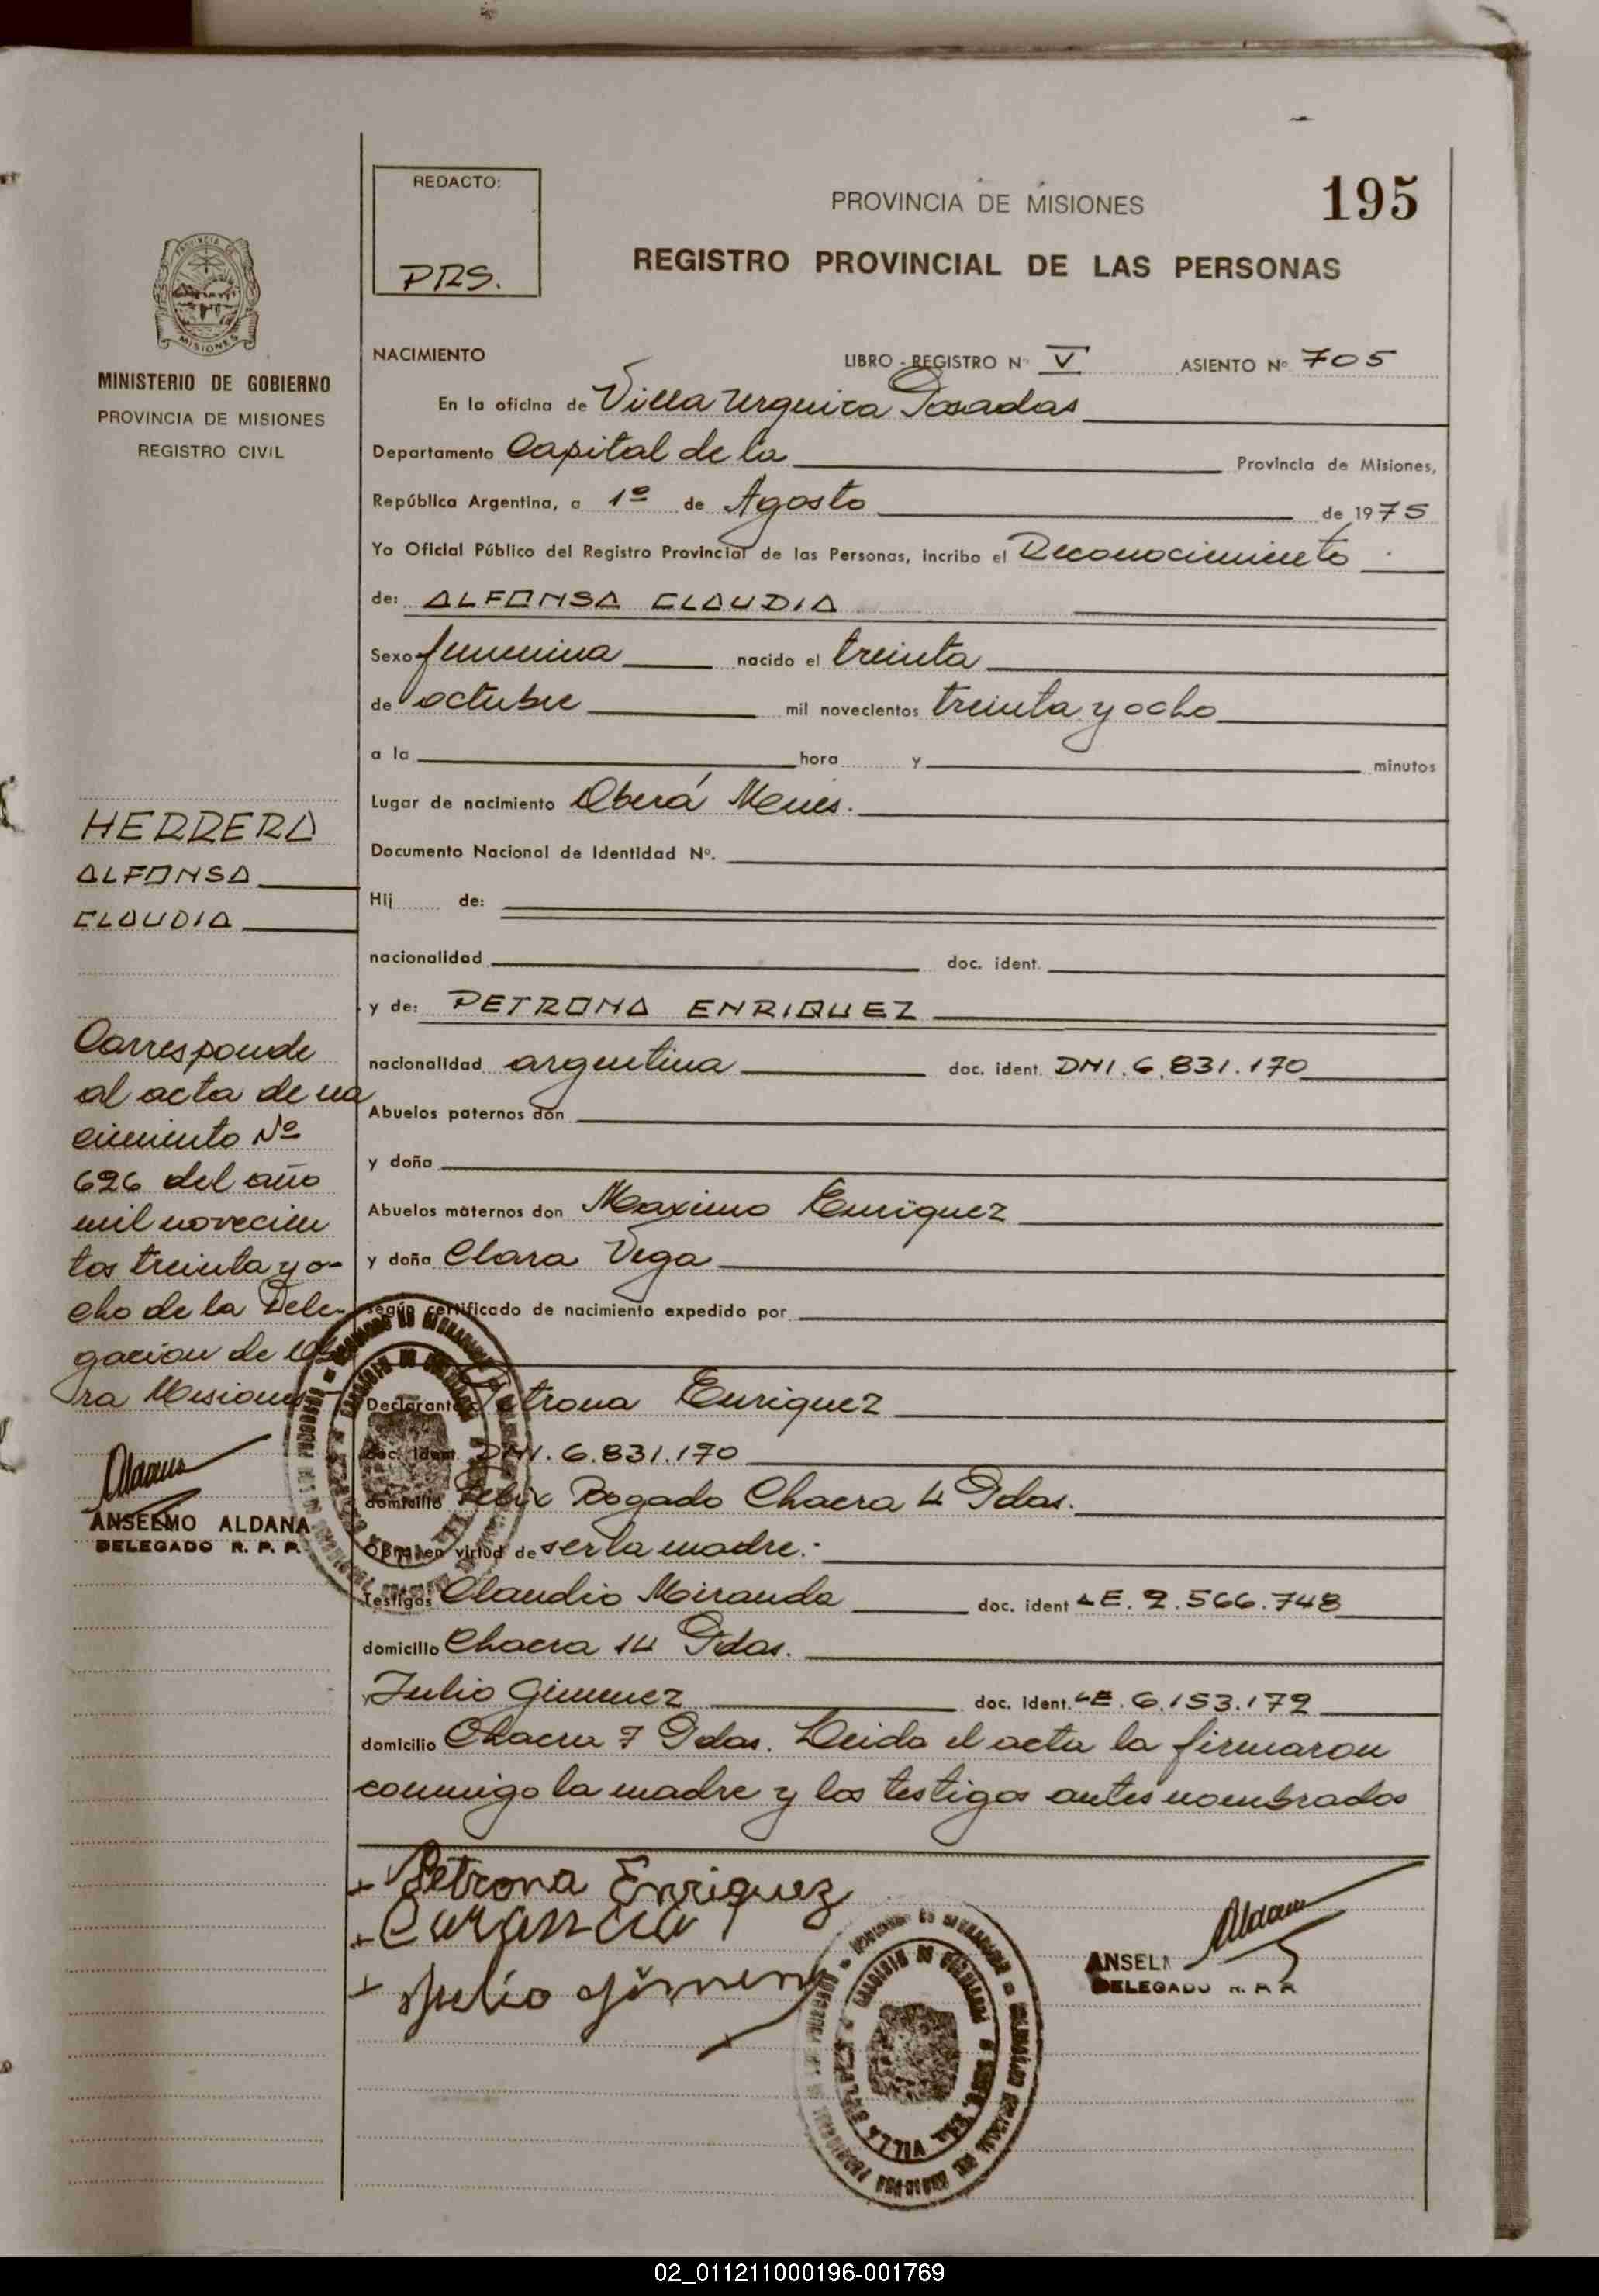 REDACTO:
PRS.
PROVINCIA DE MISIONES
195
REGISTRO PROVINCIAL DE LAS PERSONAS
MISIONES
MINISTERIO DE GOBIERNO
PROVINCIA DE MISIONES
REGISTRO CIVIL
NACIMIENTO LIBRO - REGISTRO Nº V ASIENTO Nº 705
En la oficina de Villa Urquiza Posadas
Departamento Capital de la Provincia de Misiones,
República Argentina, a 1º de Agosto de 1975
Yo Oficial Público del Registro Provincial de las Personas, incribo el Reconocimiento
de: ALFONSA CLAUDIA
Sexo femenina nacido el treinta
de octubre mil novecientos treinta y ocho
a la hora y minutos
Lugar de nacimiento Oberá Mnes.
Documento Nacional de Identidad Nº.
Hij de:
nacionalidad doc. ident.
y de: PETRONA ENRIQUEZ
nacionalidad argentina doc. ident. DNI. 6.831.170
Abuelos paternos don
y doña
Abuelos maternos don Maximo Enriquez
y doña Clara Vega
según certificado de nacimiento expedido por
Declarante Petrona Enriquez
doc. ident. DNI. 6.831.170
domicilio Felix Bogado Chacra 4 Pdas.
Obra en virtud de ser la madre.-
Testigos Claudio Miranda doc. ident LE. 2.566.748
domicilio Chacra 14 Pdas.
y Julio Gimenez doc. ident. LE. 6.153.179
domicilio Chacra 7 Pdas. Leida el acta la firmaron
conmigo la madre y los testigos antes nombrados
HERRERA
ALFONSA
CLAUDIA
Corresponde
al acta de na
cimiento Nº
626 del año
mil novecien
tos treinta y o-
cho de la Dele-
gacion de Obe
ra Misiones
Aldana
ANSELMO ALDANA
DELEGADO R. P. P.
Petrona Enriquez
Julio Gimenez
Aldana
ANSELM
DELEGADO R. P. P.
VILLA
02_011211000196-001769